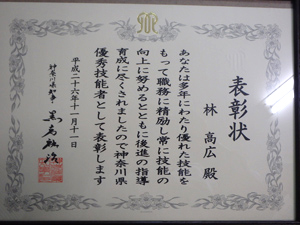 表彰状
林 高広 殿
あなたは多年にわたり優れた技能を
もって職務に精励し常に技能の
向上に努めるとともに後進の指導
育成に尽くされましたので神奈川県
優秀技能者として表彰します
平成二十六年十一月十一日
神奈川県知事 黒岩祐治